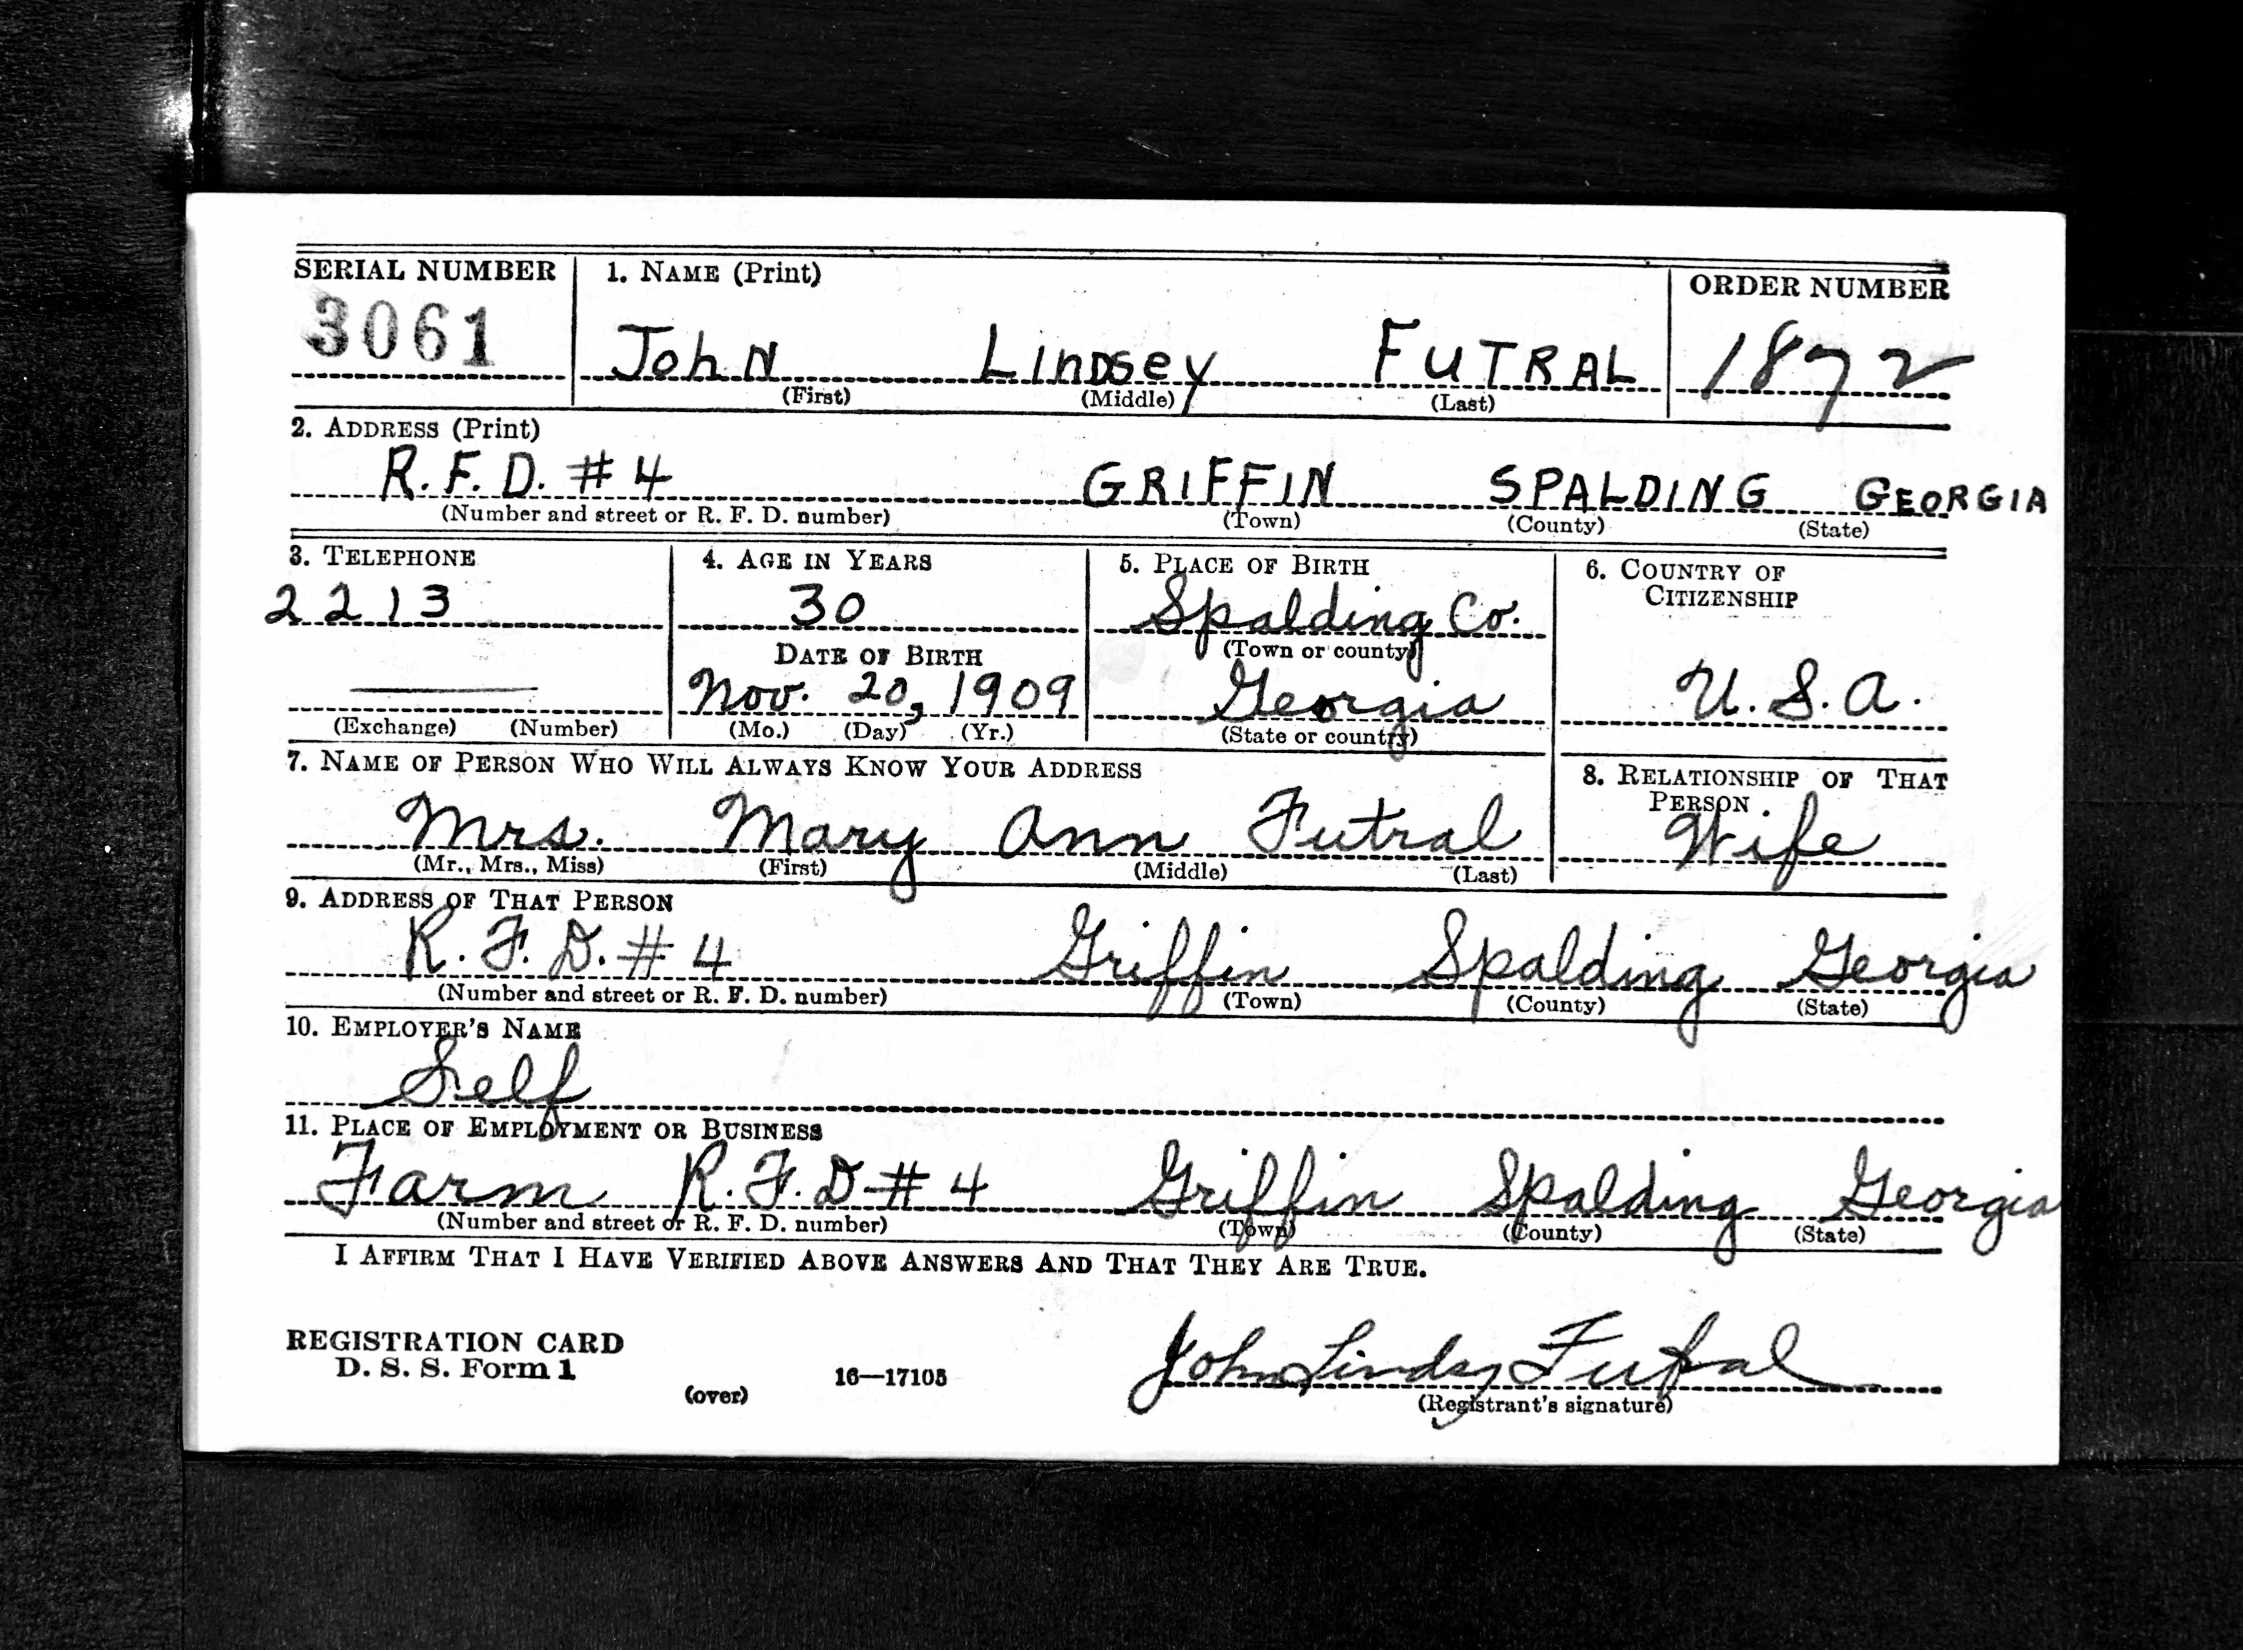 SERIAL NUMBER 1. NAME (Print) ORDER NUMBER
3061 John Lindsey FUTRAL 1872
(First) (Middle) (Last)
2. ADDRESS (Print)
R.F.D. #4 GRIFFIN SPALDING GEORGIA
(Number and street or R. F. D. number) (Town) (County) (State)
3. TELEPHONE 4. AGE IN YEARS 5. PLACE OF BIRTH 6. COUNTRY OF CITIZENSHIP
2213 30 Spalding Co.
DATE OF BIRTH (Town or county)
Nov. 20, 1909 Georgia U.S.A.
(Exchange) (Number) (Mo.) (Day) (Yr.) (State or country)
7. NAME OF PERSON WHO WILL ALWAYS KNOW YOUR ADDRESS 8. RELATIONSHIP OF THAT PERSON
Mrs. Mary Ann Futral Wife
(Mr., Mrs., Miss) (First) (Middle) (Last)
9. ADDRESS OF THAT PERSON
R.F.D. #4 Griffin Spalding Georgia
(Number and street or R. F. D. number) (Town) (County) (State)
10. EMPLOYER'S NAME
Self
11. PLACE OF EMPLOYMENT OR BUSINESS
Farm R.F.D #4 Griffin Spalding Georgia
(Number and street or R. F. D. number) (Town) (County) (State)
I AFFIRM THAT I HAVE VERIFIED ABOVE ANSWERS AND THAT THEY ARE TRUE.
John Lindsey Futral
REGISTRATION CARD
D. S. S. Form 1 16—17105
(over) (Registrant's signature)